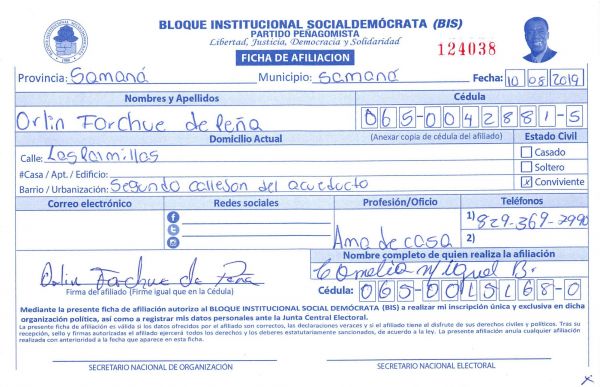 BLOQUE INSTITUCIONAL SOCIALDEMÓCRATA (BIS)
PARTIDO PEÑAGOMISTA
Libertad, Justicia, Democracia y Solidaridad
124038
FICHA DE AFILIACION
Provincia: Samaná Municipio: Samaná Fecha: 10 08 2019
Nombres y Apellidos Cédula
Orlin Forchue de Peña 065-0042881-5
Domicilio Actual (Anexar copia de cédula del afiliado) Estado Civil
Calle: Las Palmillas Casado
#Casa / Apt. / Edificio: Soltero
Barrio / Urbanización: Segundo callejon del acueducto X Conviviente
Correo electrónico Redes sociales Profesión/Oficio Teléfonos
1) 829-369-7990
Ama de casa 2)
Nombre completo de quien realiza la afiliación
Orlin Forchue de Peña Miguel B.
Firma del afiliado (Firme igual que en la Cédula) Cédula: 065-0015168-0
Mediante la presente ficha de afiliación autorizo al BLOQUE INSTITUCIONAL SOCIAL DEMÓCRATA (BIS) a realizar mi inscripción única y exclusiva en dicha
organización política, así como a registrar mis datos personales ante la Junta Central Electoral.
La presente ficha de afiliación es válida si los datos ofrecidos por el afiliado son correctos, las declaraciones veraces y si el afiliado tiene el disfrute de sus derechos civiles y políticos. Tras su
recepción, sello y firmas autorizadas el afiliado ejercerá todos los derechos y los deberes estatutariamente sancionados, de acuerdo a la ley. La presente afiliación anula cualquier afiliación
realizada con anterioridad a la fecha que aparece en esta ficha.
SECRETARIO NACIONAL DE ORGANIZACIÓN SECRETARIO NACIONAL ELECTORAL